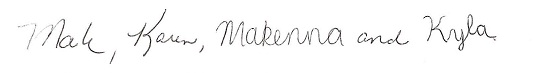 Mark, Karen, Makenna and Kyla